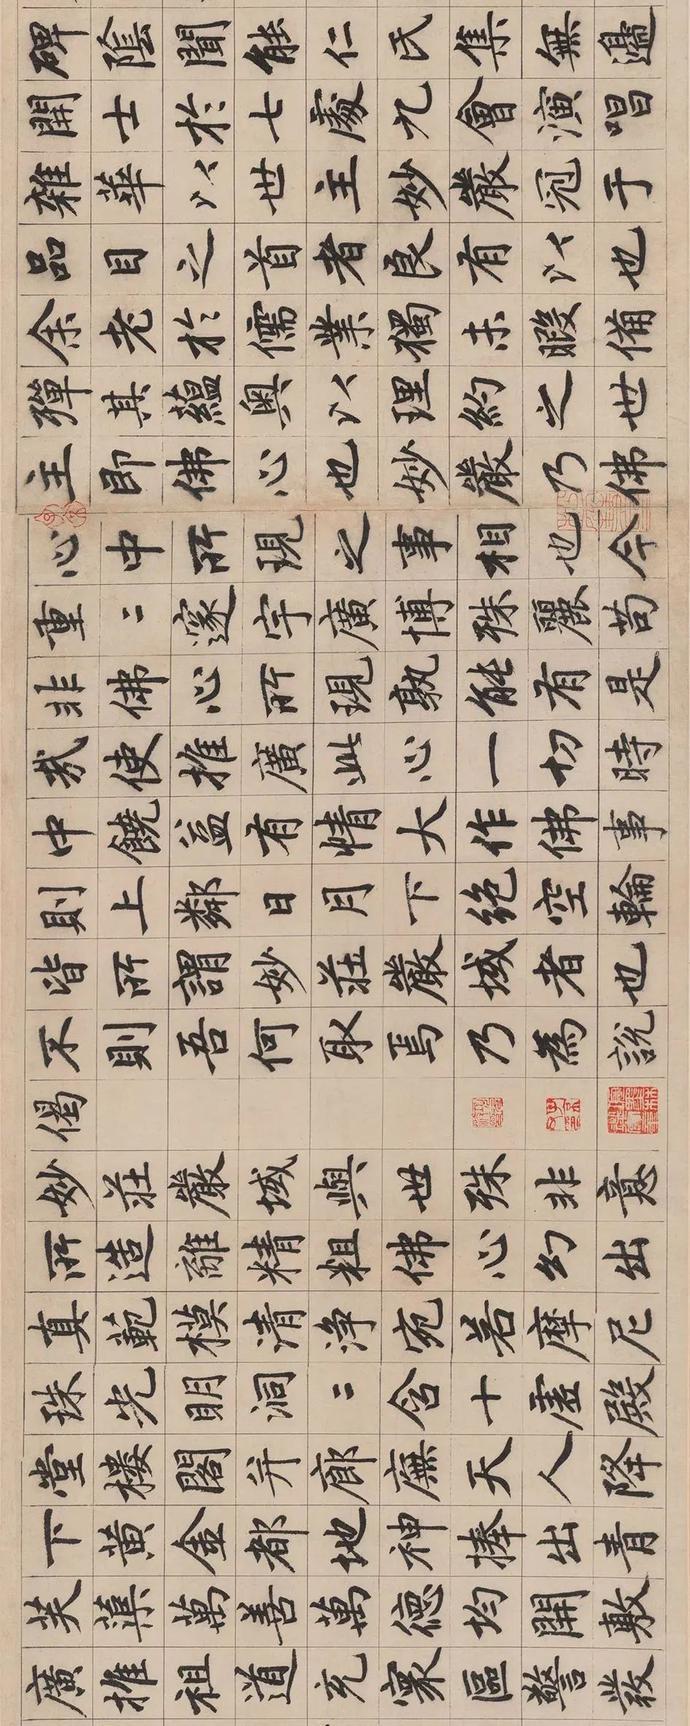 碑陰聞能仁氏集無邊
開士於七處九會演唱
雜華以世主妙嚴冠于
品目之首者良有以也
余老於儒業獨未暇備
殫其蘊奧以理約之世
主即佛心也妙嚴乃佛
心中所現之事相也今
重〻邃宇廣博殊麗苟
非佛心所現孰能有是
哉使推廣此心一切時
中饒益有情大作佛事
則上鄰日月下絕空輪
皆所謂妙莊嚴域者也
不則吾何取焉乃為說
偈
妙莊嚴域與世殊非意
所造離精粗佛心幻出
真範模清淨宛若摩尼
珠光明洞〻含十虛殿
堂樓閣并廊廡天人降
下黃金都地神捧出青
芙蕖萬善萬德均開敷
廣推祖道充寰區警